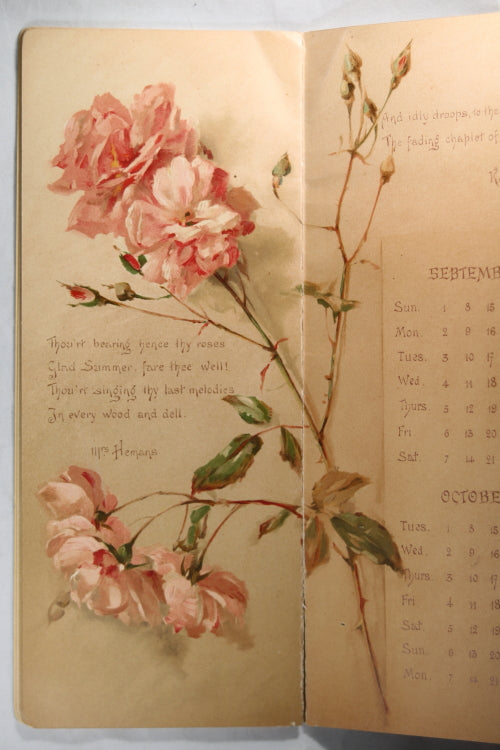 Thou'rt bearing hence thy roses
Glad Summer, fare thee well!
Thou'rt singing thy last melodies
In every wood and dell.
Mrs Hemans
And idly droops, to the
The fading chaplet of
SEPTEMB
Sun. 1 8 15
Mon. 2 9 16
Tues. 3 10 17
Wed. 4 11 18
Thurs. 5 12 19
Fri 6 13 20
Sat. 7 14 21
OCTOBE
Tues. 1 8 15
Wed. 2 9 16
Thurs. 3 10 17
Fri 4 11 18
Sat 5 12 19
Sun. 6 13 20
Mon. 7 14 21